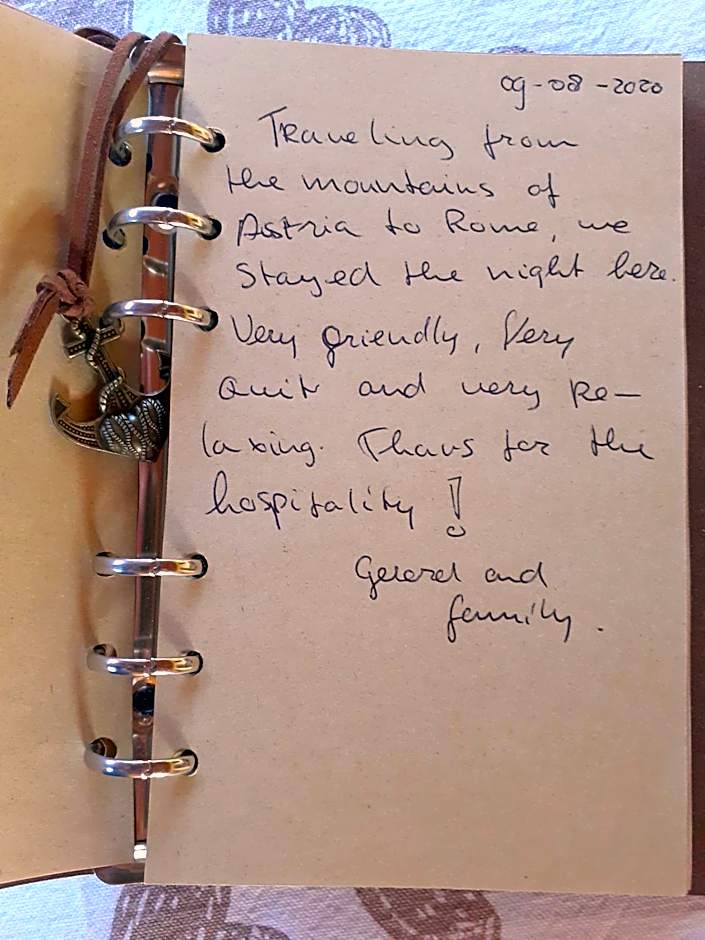 09-08-2020
Traveling from
the mountains of
Astria to Rome, we
stayed the night here.
Very friendly, Very
quit and very re-
laxing. Thans for the
hospitality!
Gererd and
family.